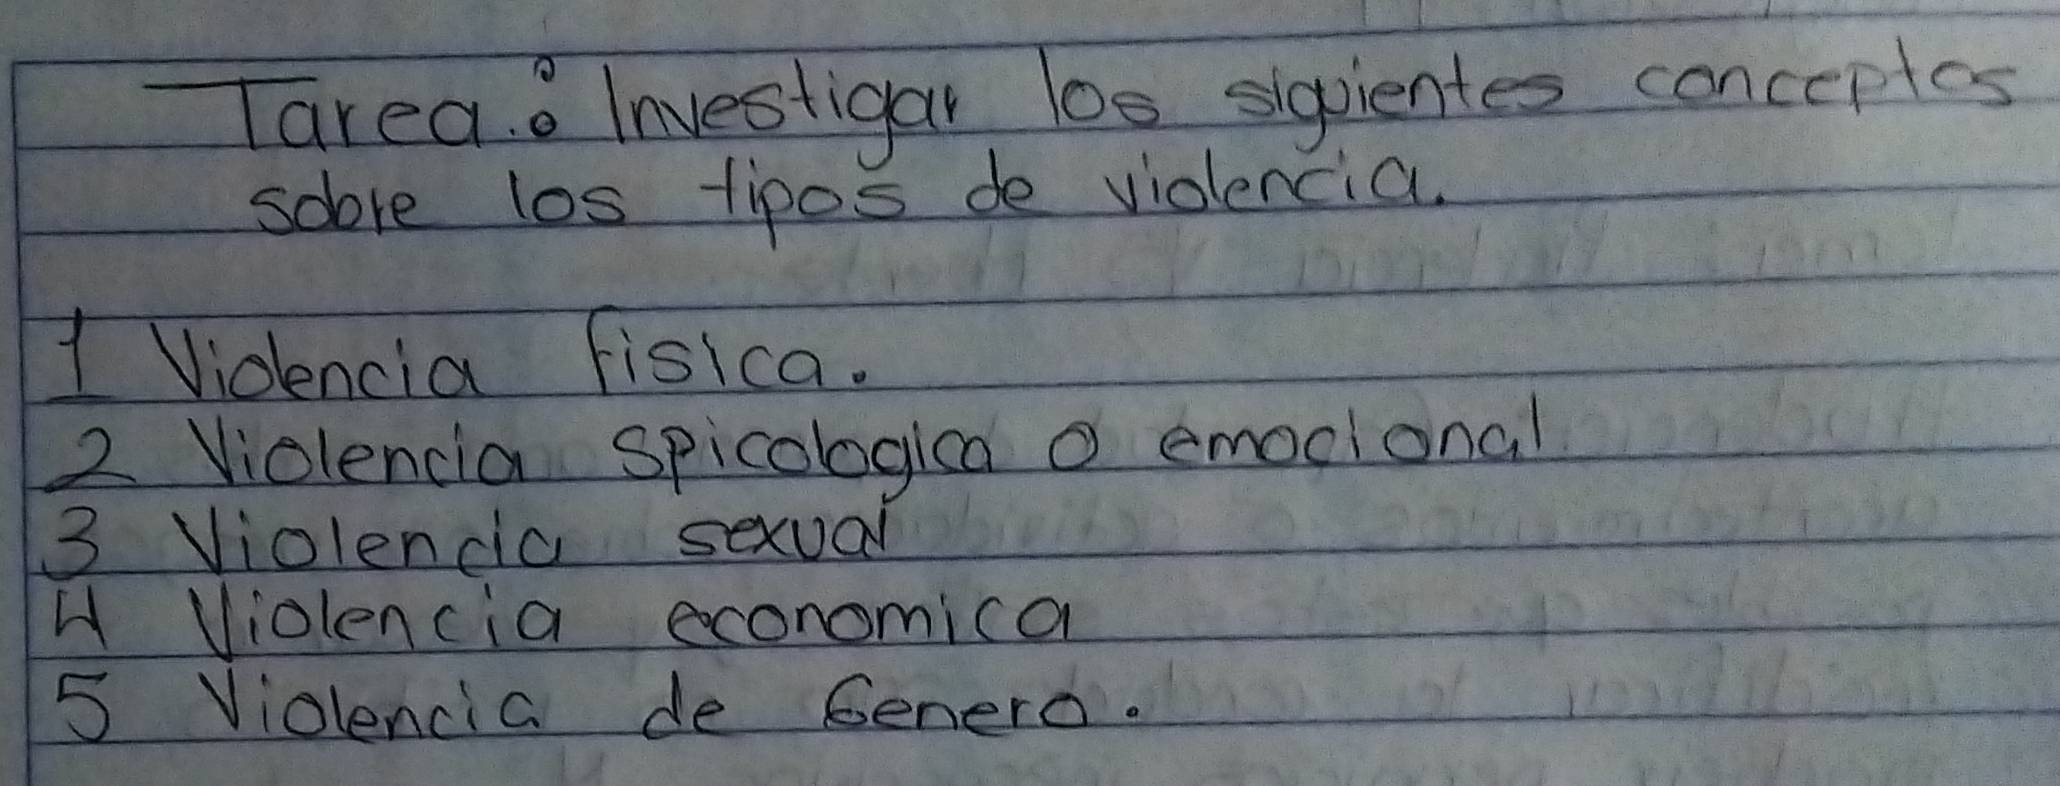 Tarea: Investigar los siguientes conceptos
sobre los tipos de violencia.
1 Violencia Fisica.
2 Violencia spicologica o emocional
3 Violencia sexual
4 Violencia economica
5 Violencia de Genero.